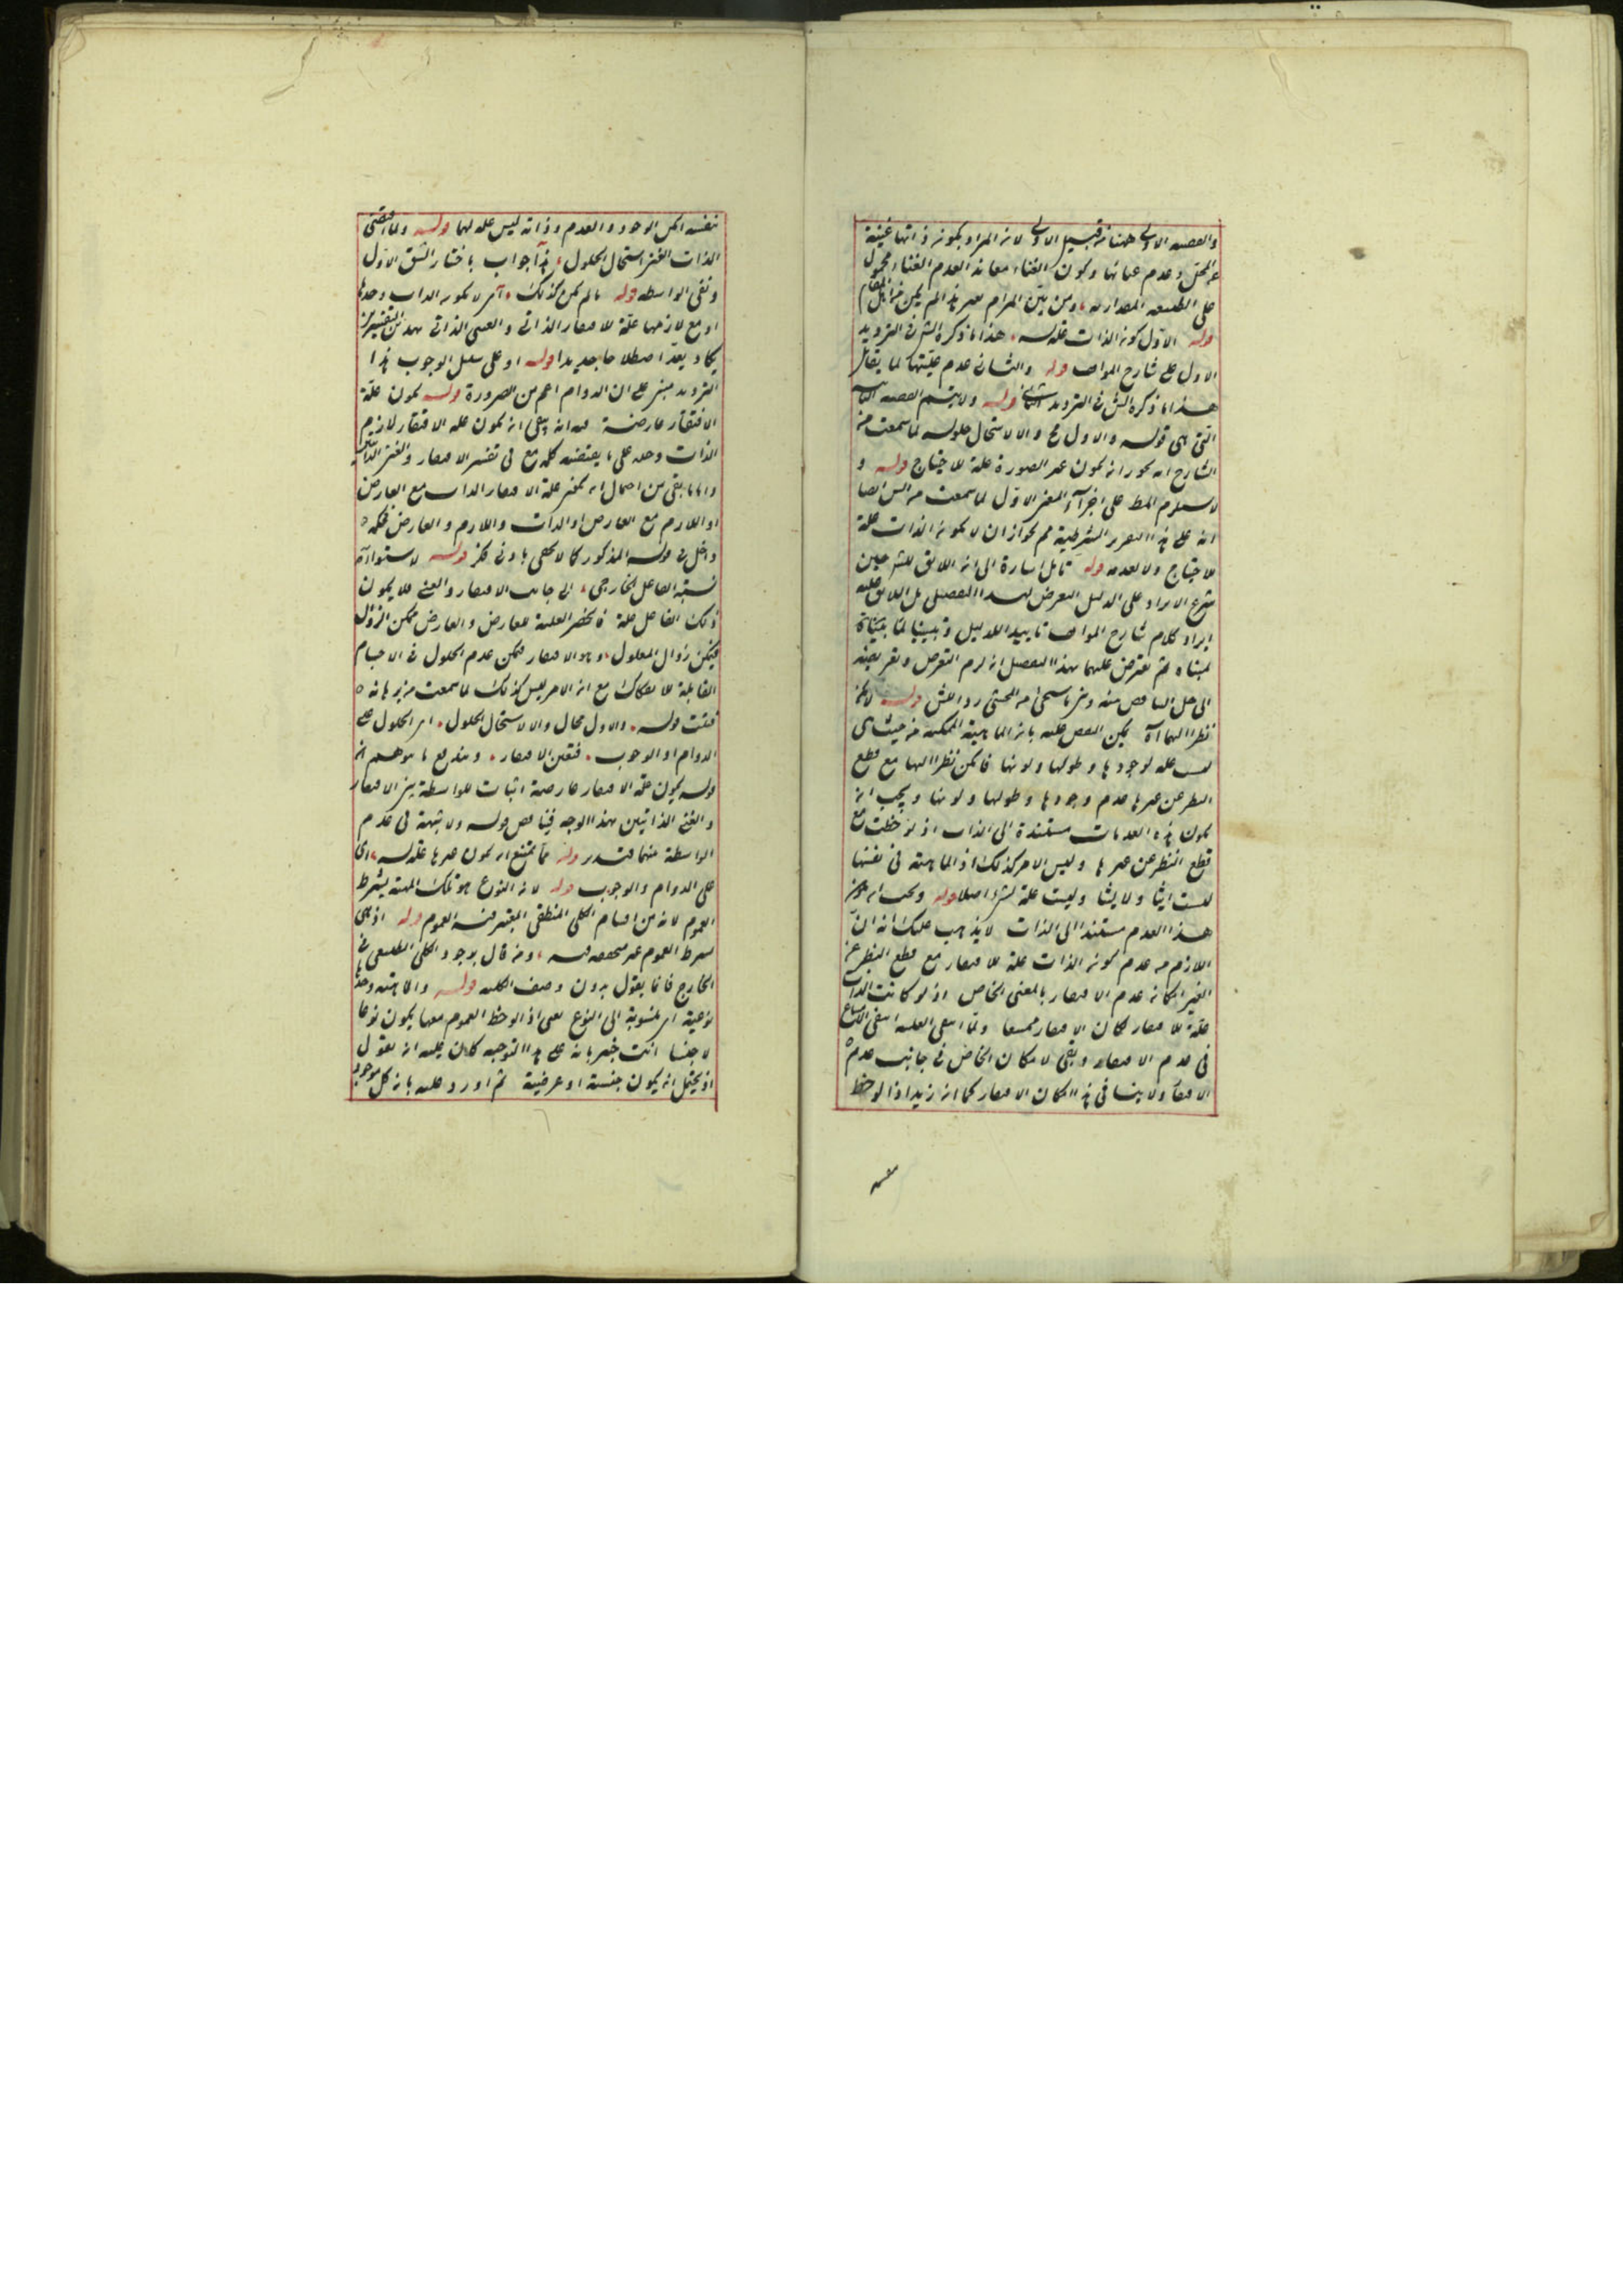 والقضية الاولى ههنا من قبيل الاولى لان المراد بكونه ذاتها غنية
عن المحل عدم عيانها وكون الغناء معاند العدم الغناء محمول
على الطبيعة المقدارية ومن بين المرام بغير هذا لم يكن من اهل المقام
قوله الاول كون الذات علة هذا ما ذكره الش في الترديد
الاول على شارح المواقف قوله والثاني عدم عليتها لما يقال
هذا ما ذكره الش في الترديد الثاني قوله ولا يتم القضية
التي هي قوله والاول مح والا لاستحال حلوله لما سمعت من
الشارح انه يجوز ان يكون غير الصورة علة للاحتياج قوله و
لا يستلزم المط على اجزاء المعنى الاول لما سمعت من الش ايضا
انه على هذا التقرير الشرطية مم لجواز ان لا يكون الذات علة
للاحتياج ولا لعدمه قوله تامل اشارة الى ان اللايق للشرحين
شرع الايراد على الدليل التعرض لهذا التفصيل بل اللايق عليه
ايراد كلام شارح المواقف تاييدا للدليل وتبيينا لما
لمبناه ثم تعرض عليهما بهذا التفصيل ان لزم التعرض
الى حل منه ومن المحشي قوله لا يمكن
نظرا اليها آه يمكن النقض عليه بان الماهية الممكنة من حيث هي
ليست علة لوجودها وطولها ولونها فامكن نظرا اليها مع قطع
النظر عن غيرها عدم وجودها وطولها ولونها ويجب ان
يكون هذه العدمات مستندة الى الذات اذ لوحظت مع
قطع النظر عن غيرها وليس الامر كذلك اذ الماهية في نفسها
ليست ايسا ولا ليسا وليست علة لشئ اصلا قوله ويجب ان يكون
هذا العدم مستندا الى الذات لا يذهب عليك انه ان
اللازم من عدم كون الذات علة للافتقار مع قطع النظر عن
الغير امكان عدم الافتقار بالمعنى الخاص اذ لو كانت الذات
علة للافتقار لكان الافتقار ممتنعا ولما انتفى العلية انتفى الامتناع
في عدم الافتقار وبقي الامكان الخاص في جانب عدم
الافتقار ولا ينافي هذا امكان الافتقار كما ان زيدا اذا لوحظ
نفسه
نفسه امكن الوجود والعدم وذاته ليس علة لهما قوله ولما اقتضى
الذات الغنى استحال الحلول هذا جواب باختيار الشق الاول
ونفى الواسطة قوله ما لم يكن كذلك اى لا يكون الذات وحدها
او مع لازمها علة للافتقار الذاتي والغنى الذاتي بهذين التفسيرين
يكاد يعد اصطلاحا جديدا قوله او على سبيل الوجوب هذا
الترديد مبنى على ان الدوام اعم من الضرورة قوله يكون علة
الافتقار عارضة فيه انه بقى ان يكون علة الافتقار لازم
الذات وحده على ما يقتضيه كلمة مع في تفسير الافتقار والغنى الذاتيين
واما ما بقى من احتمال ان يكون علة الافتقار الذات مع العارض
او اللازم مع العارض او الذات واللازم والعارض فكله
داخل في قوله المذكور كما لا يخفى بادنى فكر قوله لاستواء
نسبة الفاعل الخارجي الى جانب الافتقار والغنى فلا يكون
ذلك الفاعل علة فانحصر العلية للعارض والعارض ممكن الزوال
فيمكن زوال المعلول وهو الافتقار فيمكن عدم الحلول في الاجسام
القابلة للانفكاك مع ان الامر ليس كذلك لما سمعت من برهانه
فثبت قوله والاول محال والا لاستحال الحلول اى الحلول على
الدوام او الوجوب فتعين الافتقار ويندفع ما يتوهم ان
قوله يكون علة الافتقار عارضة اثبات للواسطة بين الافتقار
والغنى الذاتيين بهذا الوجه فيناقض قوله ولا شبهة في عدم
الواسطة بينهما فتدبر قوله مما يمتنع ان يكون غيرها علة له اى
على الدوام والوجوب قوله لان النوع هو تلك المهية بشرط
العموم لانه من اقسام الكلى المنطقى المعتبر فيه العموم قوله اذ هى
بشرط العموم غير متحققة فيه ومن قال بوجود الكلى الطبيعى في
الخارج فانما يقول بدون وصف الكلية قوله والماهية وحدها
نوعية اى منسوبة الى النوع يعنى اذا لوحظ العموم معها يكون نوعا
لا جنسا انت خبير بانه على هذا التوجيه كان عليه ان يقول
اذ يحتمل ان يكون جنسية او عرضية ثم اورد عليه بان كل موجود